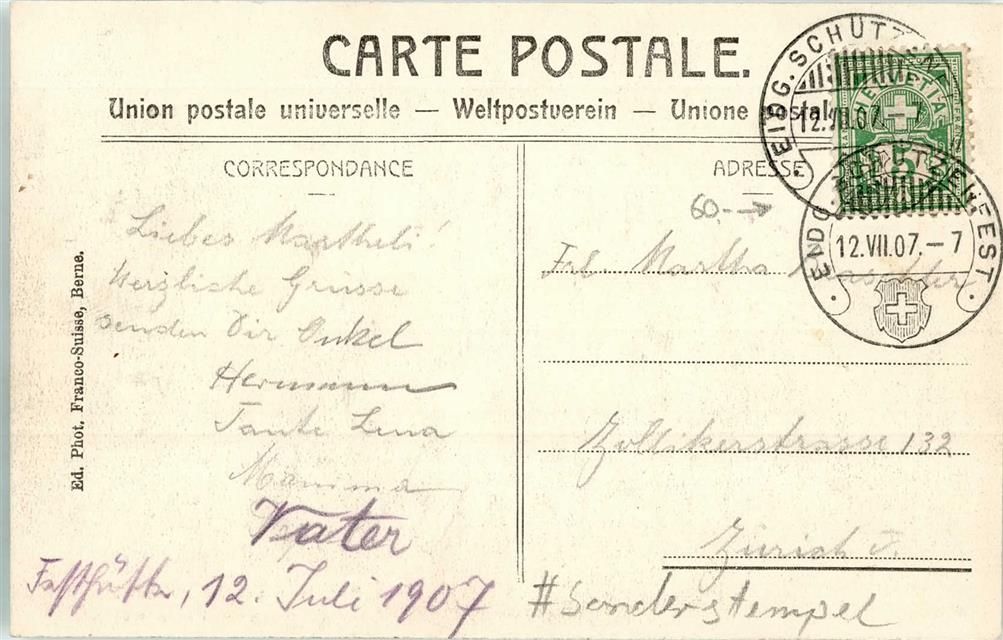 CARTE POSTALE.
Union postale universelle — Weltpostverein — Unione postale
CORRESPONDANCE
Liebes Martheli!
Herzliche Grüsse
senden Dir Onkel
Hermann
Tante Lena
Mamma
Vater
Festhütte, 12. Juli 1907
Ed. Phot. Franco-Suisse, Berne.
ADRESSE
60.—
Frl. Martha
Zollikerstrasse 132
Zürich V.
#Sonderstempel
HELVETIA
5
EIDG. SCHÜTZENFEST
12.VII.07.–7
EIDG. SCHÜTZENFEST
12.VII.07.–7